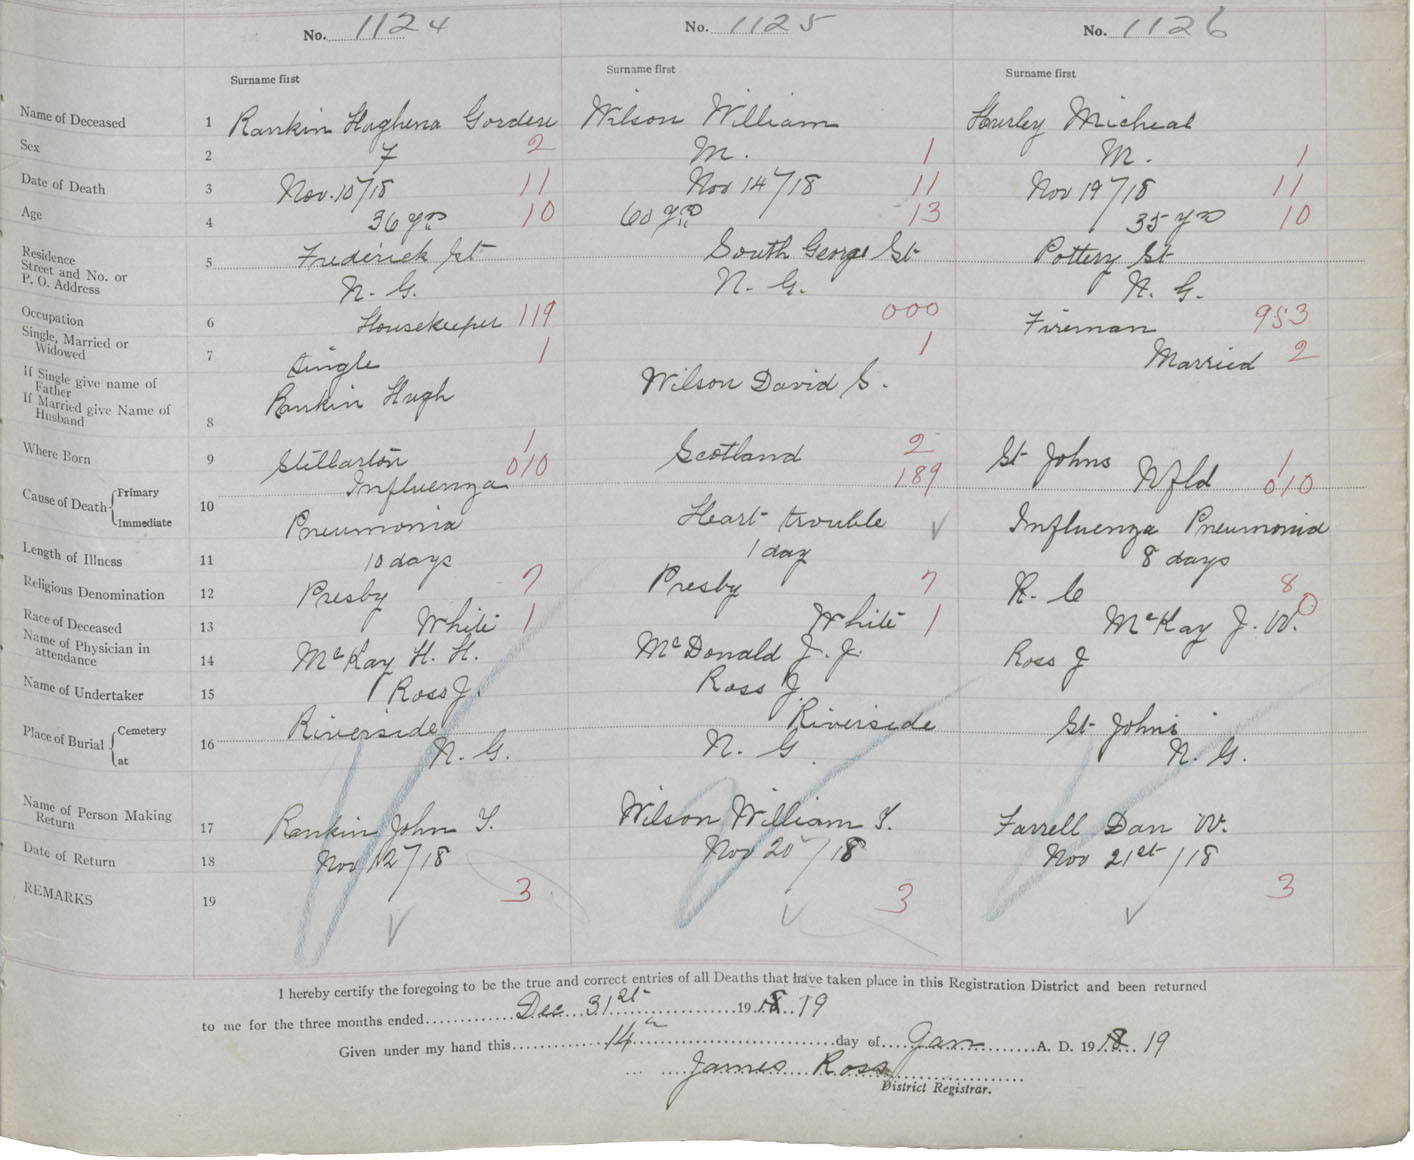 No. 1124 No. 1125 No. 1126
Surname first Surname first Surname first
Name of Deceased 1 Rankin Hughena Wilson William Hurley Micheal
Sex 2 F 2 M. 1 M. 1
Date of Death 3 Nov. 10/18 11 Nov 14/18 11 Nov 19/18 11
Age 4 36 yrs 10 60 yrs 13 35 yrs 10
Residence
Street and No. or
P. O. Address
5 Frederick St South George St Pottery St
N. G. N. G. N. G.
Occupation 6 Housekeeper 119 000 Fireman 953
Single, Married or
Widowed
7 Single 1 1 Married 2
If Single give name of
Father
If Married give Name of
Husband
8 Rankin Hugh Wilson David S.
Where Born 9 Stellarton 1 Scotland 2 St Johns Nfld 1
010 189 010
Cause of Death { Primary
Immediate
10 Influenza
Pneumonia Heart trouble Influenza Pneumonia
Length of Illness 11 10 days 1 day 8 days
Religious Denomination 12 Presby 7 Presby 7 R. C 8
Race of Deceased 13 White 1 White 1 0
Name of Physician in
attendance
14 McKay H. H. McDonald J. J. McKay J. W.
Name of Undertaker 15 Ross J. Ross J. Ross J
Place of Burial { Cemetery
at
16 Riverside Riverside St Johns
N. G. N. G. N. G.
Name of Person Making
Return
17 Rankin John T. Wilson William T. Farrell Dan W.
Date of Return 18 Nov 12/18 Nov 20/18 Nov 21st/18
REMARKS 19 3 3 3
I hereby certify the foregoing to be the true and correct entries of all Deaths that have taken place in this Registration District and been returned
to me for the three months ended Dec 31st 1918 19
Given under my hand this 14 day of Jan A. D. 1918 19
James Ross
District Registrar.